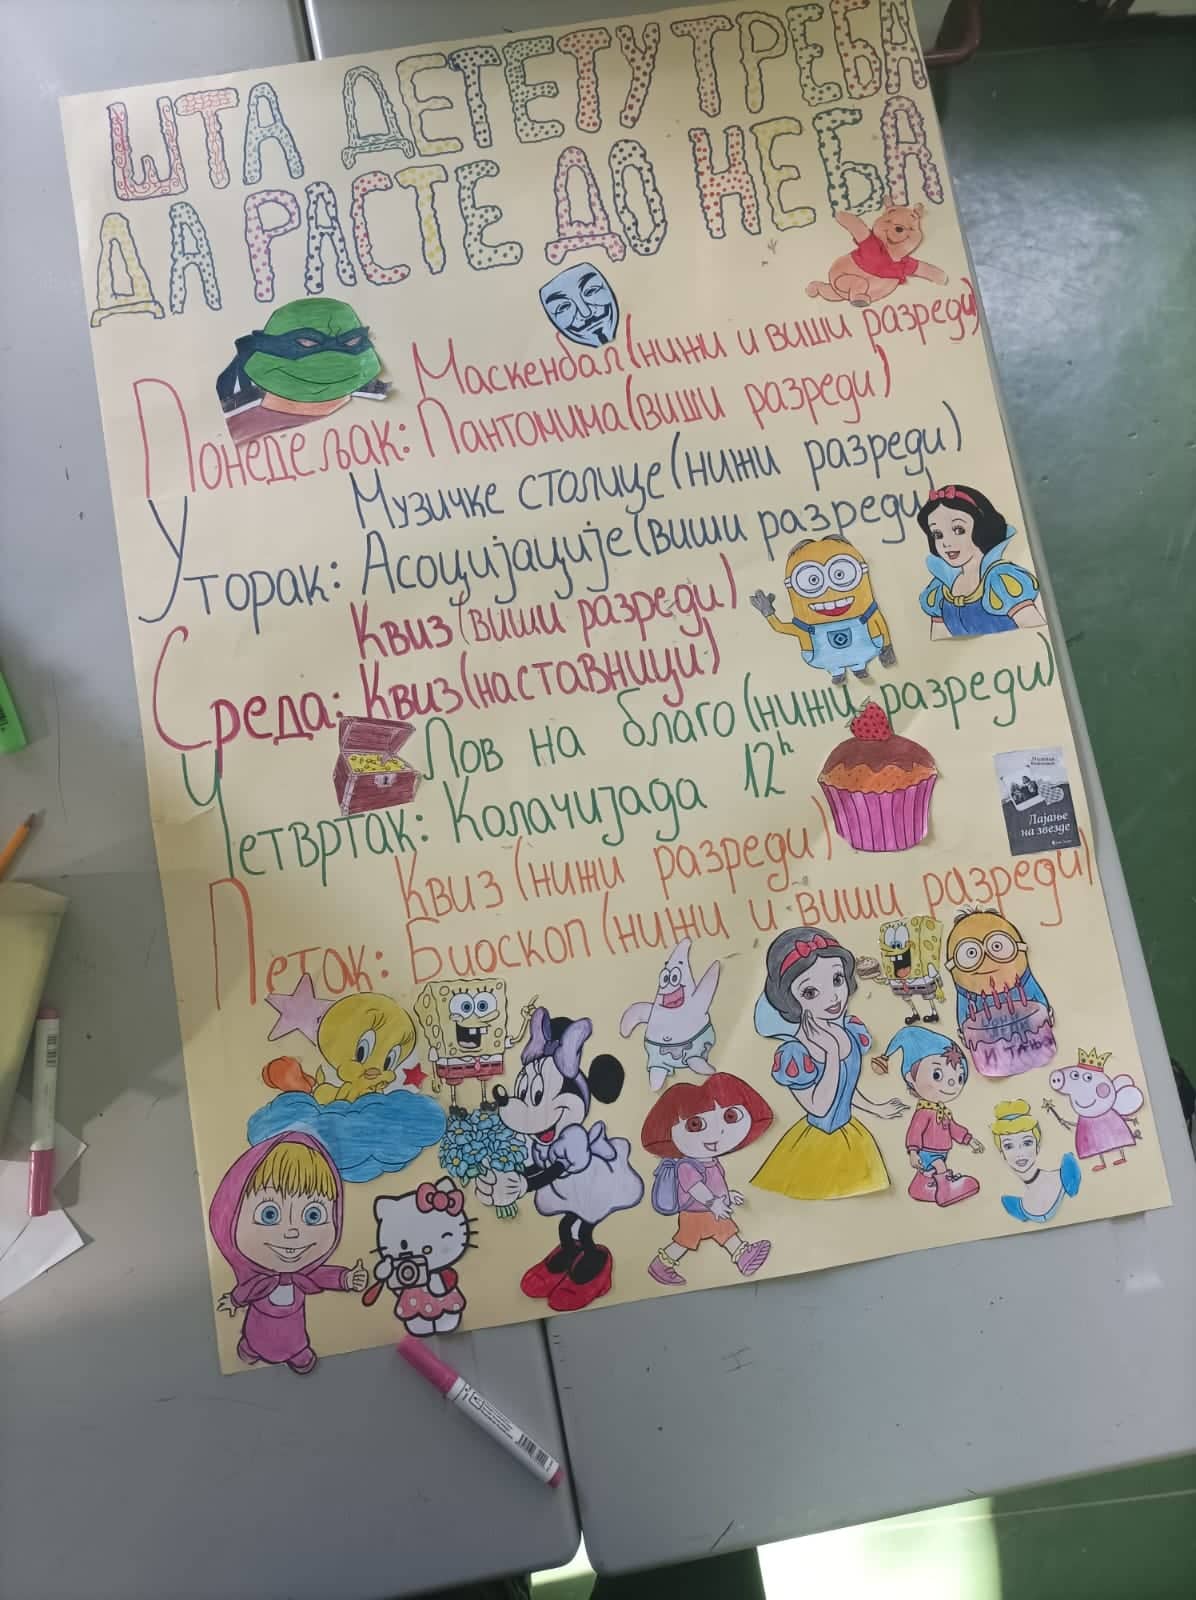 ШТА ДЕТЕТУ ТРЕБА
ДА РАСТЕ ДО НЕБА
Маскенбал (нижи и виши разреди)
Понедељак: Пантомима (виши разреди)
Музичке столице (нижи разреди)
Уторак: Асоцијације (виши разреди)
Квиз (виши разреди)
Среда: Квиз (наставници)
Лов на благо (нижи разреди)
Четвртак: Колачијада 12h
Квиз (нижи разреди)
Петак: Биоскоп (нижи и виши разреди)
Лајање
на звезде